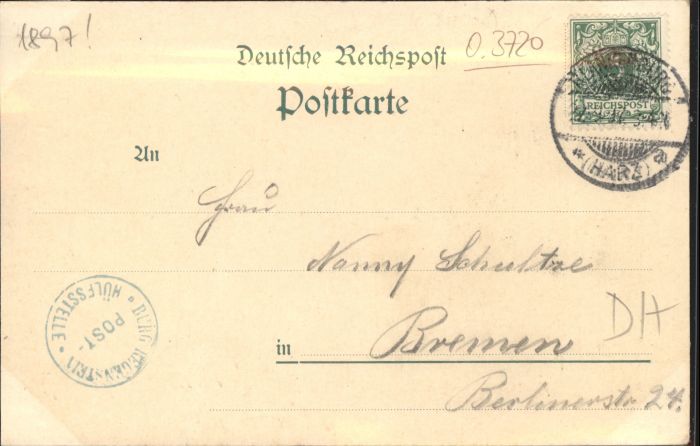 1897!
Deutsche Reichspost
0.3720
Postkarte
REICHSPOST
(HARZ) a
An
Frau
Nanny Schultze
BURG REGENSTEIN
POST-
HÜLFSSTELLE
DH
in Bremen
Berlinerstr 24.